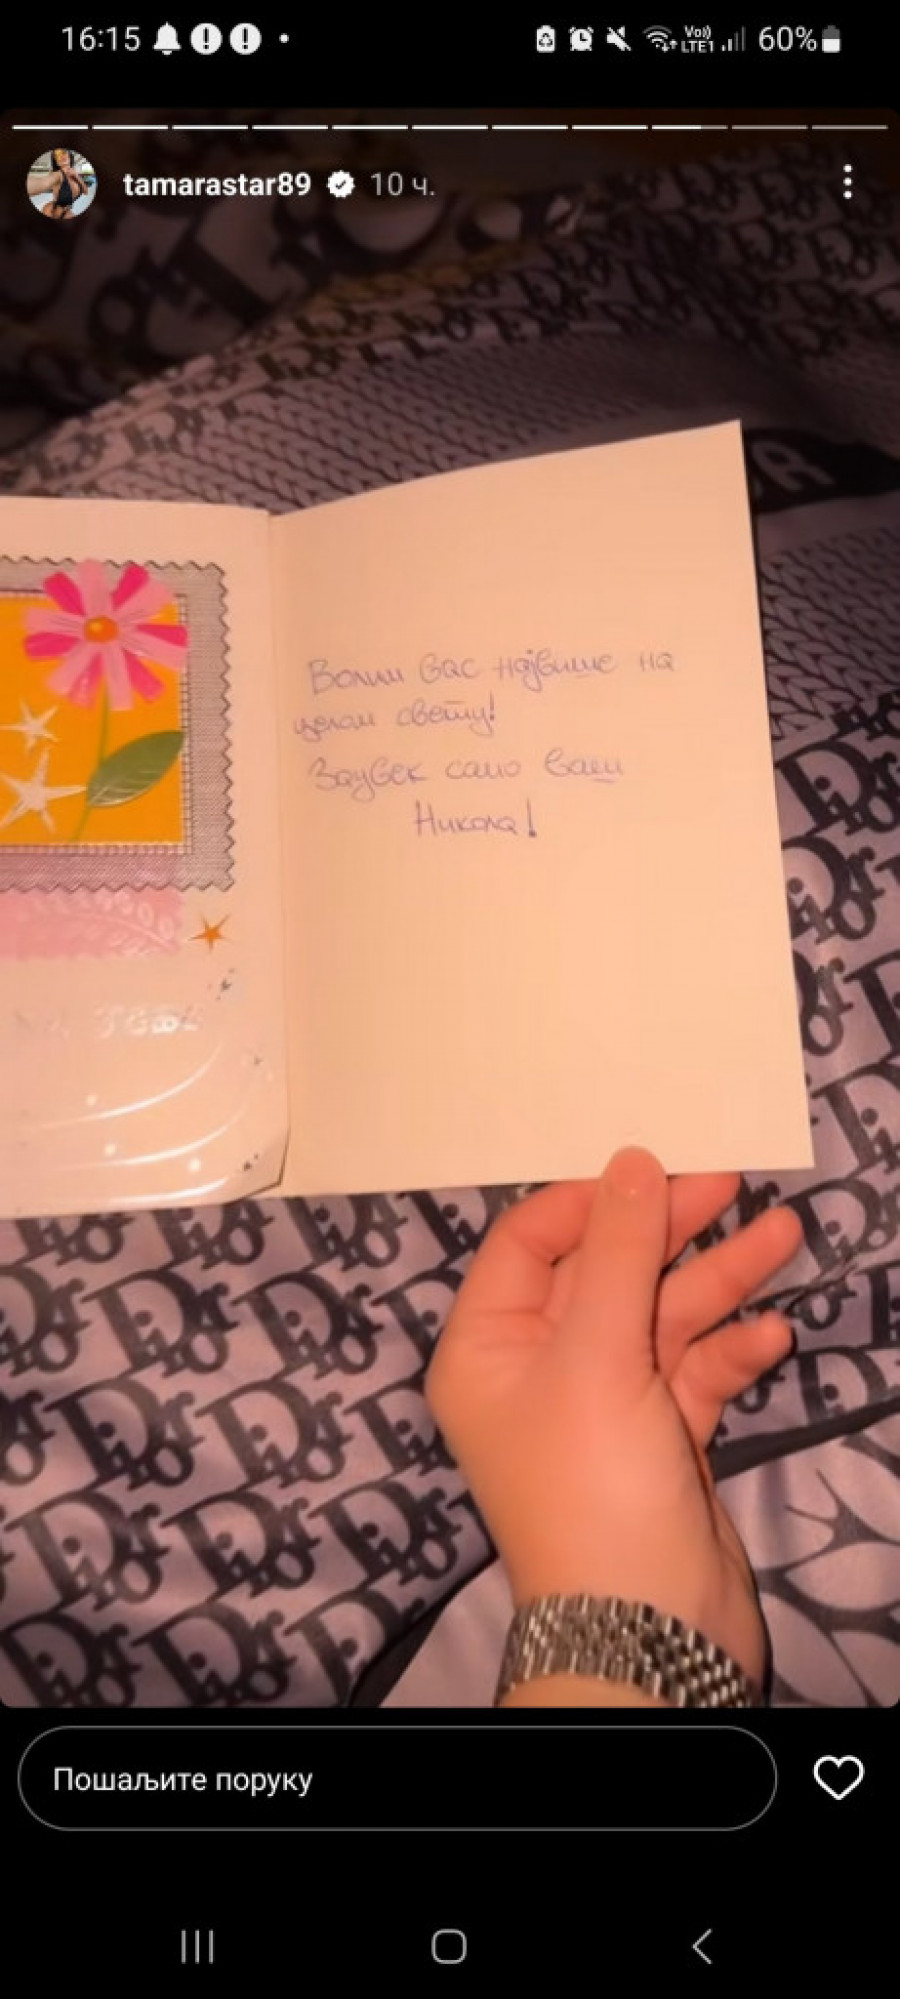 16:15
Vo))
LTE1
60%
tamarastar89 10 ч.
Волим вас највише на
целом свету!
Заувек само ваш
Никола!
Dior
Пошаљите поруку